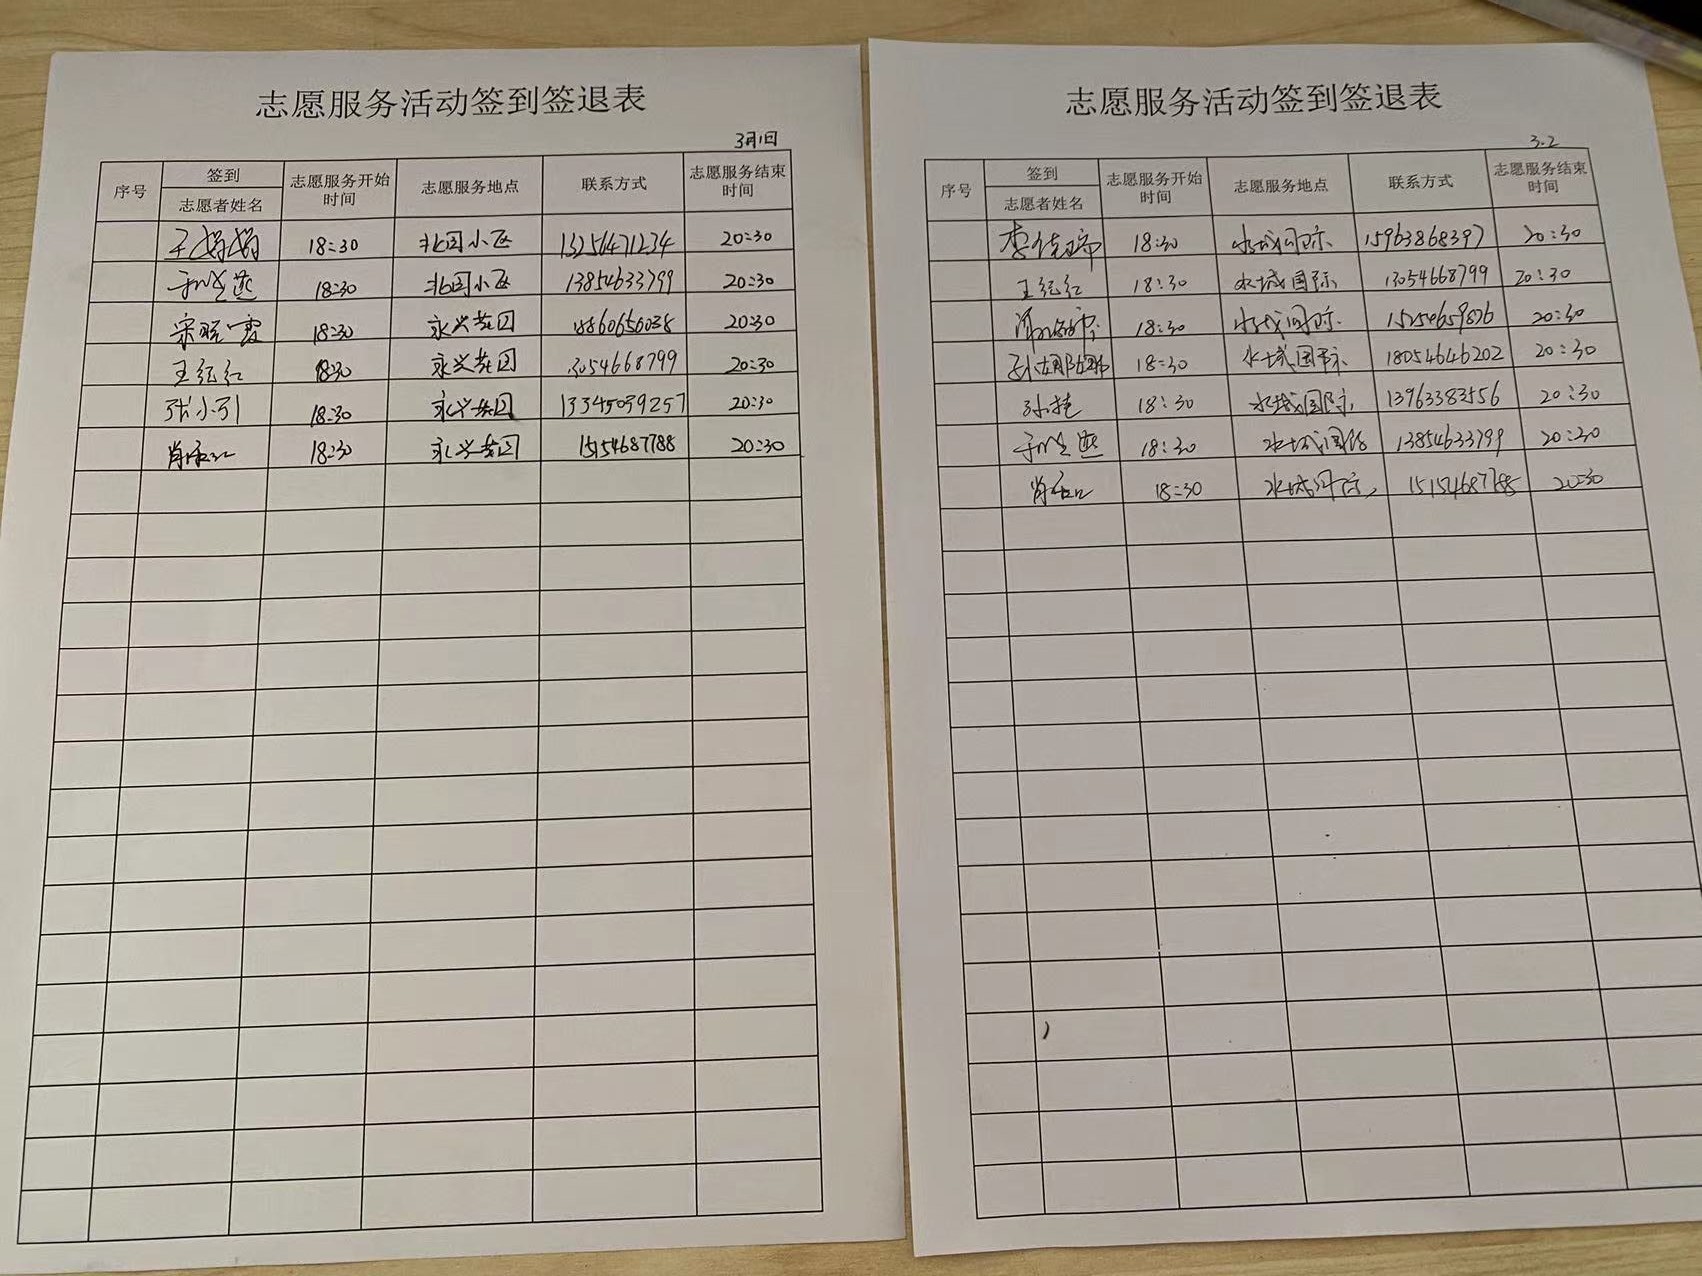 志愿服务活动签到签退表
3月1日
序号 签到 志愿者姓名 志愿服务开始时间 志愿服务地点 联系方式 志愿服务结束时间
王娟娟 18:30 北园小区 13256471234 20:30
18:30 北园小区 13854633799 20:30
宋晓雪 18:30 永兴花园 20:30
王纪红 18:30 永兴花园 3054668799 20:30
张小引 18:30 永兴花园 13345059257 20:30
18:30 永兴花园 15154687788 20:30
志愿服务活动签到签退表
3.2
序号 签到 志愿者姓名 志愿服务开始时间 志愿服务地点 联系方式 志愿服务结束时间
18:30 水城国际 15963868397 20:30
王纪红 18:30 水城国际 13054668799 20:30
18:30 水城国际 15254659876 20:30
18:30 水城国际 18054646202 20:30
孙桂 18:30 水城国际 13963383556 20:30
18:30 水城国际 13854633799 20:30
18:30 水城国际 15154687788 20:30